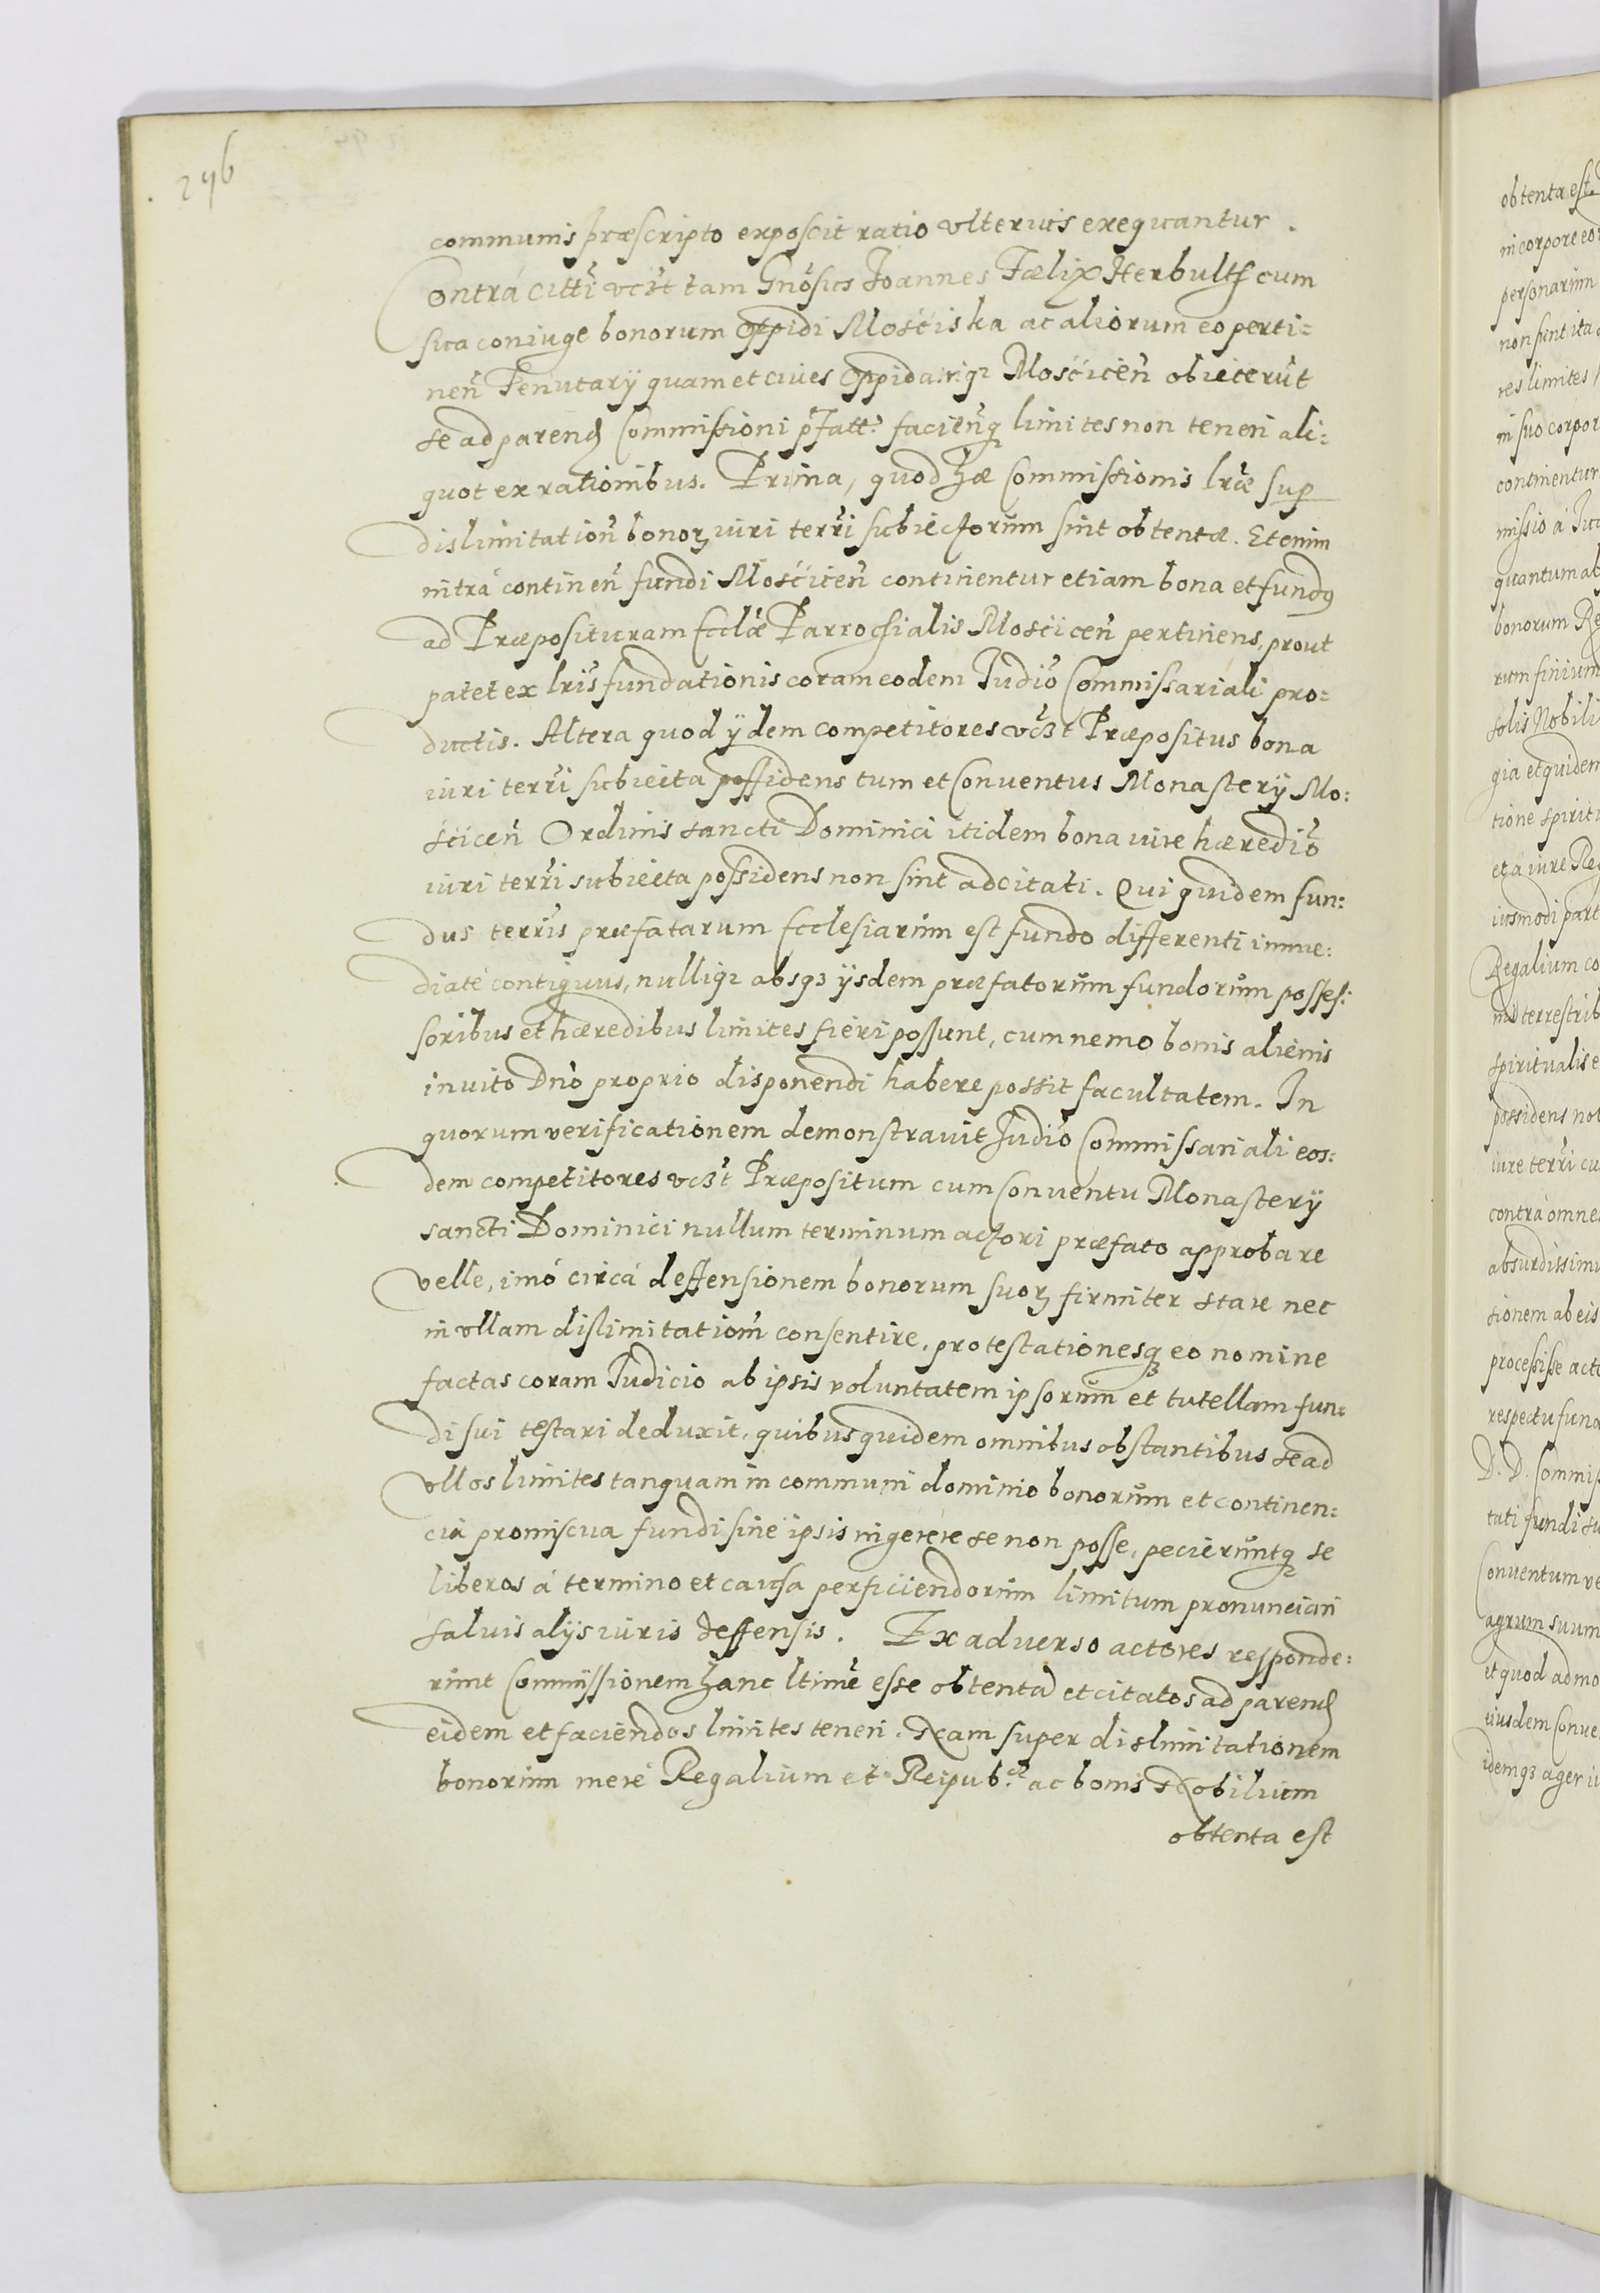 296
communis præscripto exposcit ratio ulterius exequantur.
Contrà citti vczt tam Gnosus Joannes Fælix Herbultꝭ cum
sua coniuge bonorum oppidi Mościska ac aliorum eo perti=
nen̄ Tenutarÿ quam et ciues oppidaniqȝ Mościcen̄ obiecerut
se ad parend Commissioni pfatt. facienq limites non teneri ali=
quot ex rationibus. Prima, quod hæ Commissionis lræ sup
dislimitation̄ bonoꝝ iuri terri subiectorum sint obtentæ. Etenim
intrà continen̄ fundi Mościcen̄ continentur etiam bona et fundꝰ
ad Præposituram Ecclæ Parrochialis Mościcen̄ pertinens, prout
patet ex lris fundationis coram eodem Iudio Commissariali pro=
ductis. Altera quod ÿdem competitores vczt Præpositus bona
iuri terri subiecta possidens tum et Conuentus Monasterÿ Mo=
ścicen̄ Ordinis sancti Dominici itidem bona iure hæredio
iuri terri subiecta possidens non sint adcitati. Qui quidem fun=
dus terris præfatarum Ecclesiarum est fundo differenti imme=
diatè contiguus, nulliqȝ absqȝ ÿsdem præfatorum fundorum posses=
soribus et hæredibus limites fieri possunt, cum nemo bonis alienis
inuito Dno proprio disponendi habere possit facultatem. In
quorum verificationem demonstrauit Iudio Commissariali eos=
dem competitores vczt Præpositum cum Conuentu Monasterÿ
sancti Dominici nullum terminum actori præfato approbare
velle, imò circà deffensionem bonorum suoꝝ firmiter stare nec
in ullam dislimitationm consentire, protestationesqȝ eo nomine
factas coram Iudicio ab ipsis voluntatem ipsorum et tutellam fun=
di sui testari deduxit, quibus quidem omnibus obstantibus se ad
ullos limites tanquam in communi dominio bonorum et continen=
cia promiscua fundi sine ipsis ingerere se non posse, pecieruntqȝ se
liberos á termino et causa perficiendorum limitum pronunciari
saluis alÿs iuris deffensis. Ex aduerso actores responde=
runt Commissionem hanc ltime esse obtentā et citatos ad parend
eidem et faciendos limites teneri. Nam super dislimitationem
bonorum merè Regalium et Reipub.cæ ac bonis Nobilium
obtenta est
obtenta est.
in corpore eo
personarum
non sunt ita
res limites
in suo corpor
continentur
missio á Iu
quantum ab
bonorum Re
rum finium
solis Nobili
gia et quidem
tione spiritu
et á iure Reg
iusmodi part
Regalium co
nis terrestrib
spiritualis e
possidens no
iure terri cu
contrà omne
absurdissimu
tionem ab eis
processisse acto
respectu fund
D. D. Commis
tuti fundi su
Conuentum ve
agrum suum
et quod admo
eiusdem Conue
idemqȝ ager iu